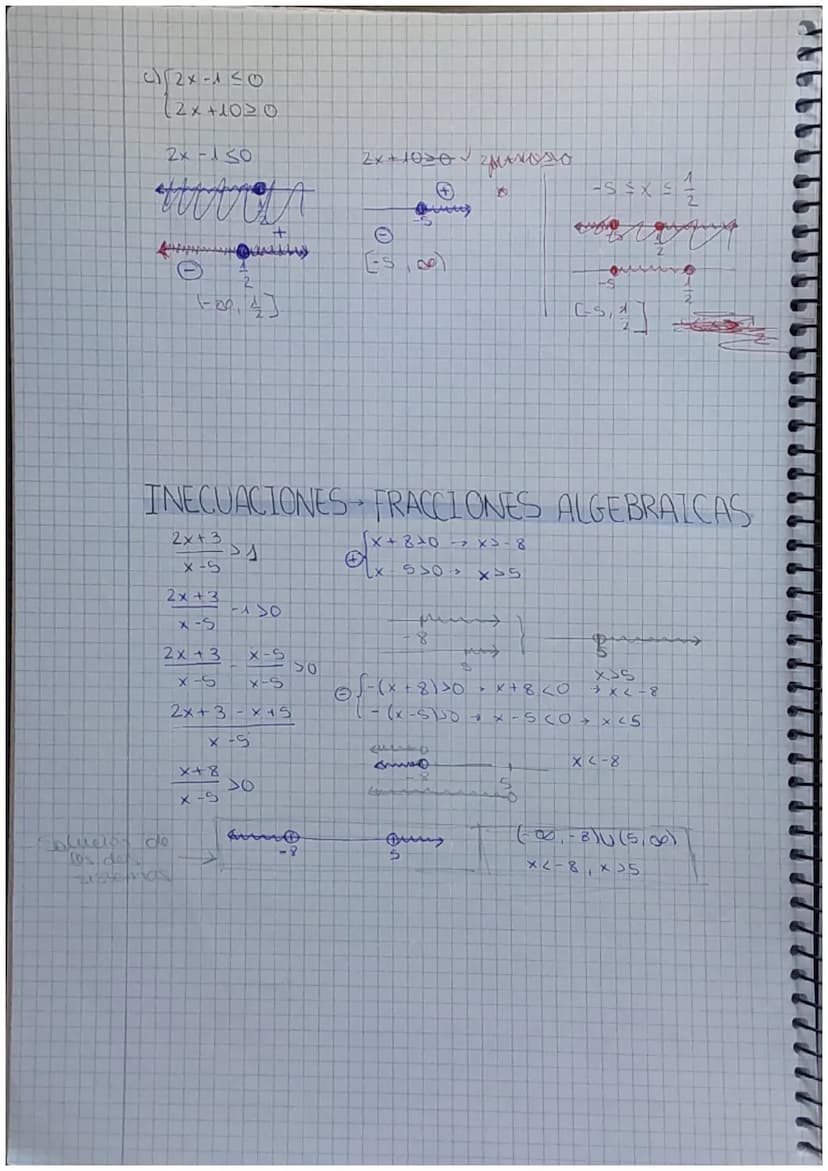 c) { 2x-1≤0
2x+10≥0
2x-1≤0
1/2
+
⊖ 1/2
(-∞, 1/2]
2x+10≥0
⊕
-5
⊖
[-5, ∞)
-5 ≤ x ≤ 1/2
-5 1/2
-5 1/2
[-5, 1/2]
INECUACIONES → FRACCIONES ALGEBRAICAS
2x+3/x-5 > 1
2x+3/x-5 - 1 > 0
2x+3/x-5 - x-5/x-5 > 0
2x+3-x+5/x-5
x+8/x-5 > 0
⊕ { x+8>0 → x>-8
x-5>0 → x>5
-8
5
5
x>5
⊖ { -(x+8)>0 → x+8<0 → x<-8
-(x-5)>0 → x-5<0 → x<5
-8 5
x<-8
Solución de
los dos
sistemas
-8 5
(-∞, -8)∪(5, ∞)
x<-8, x>5